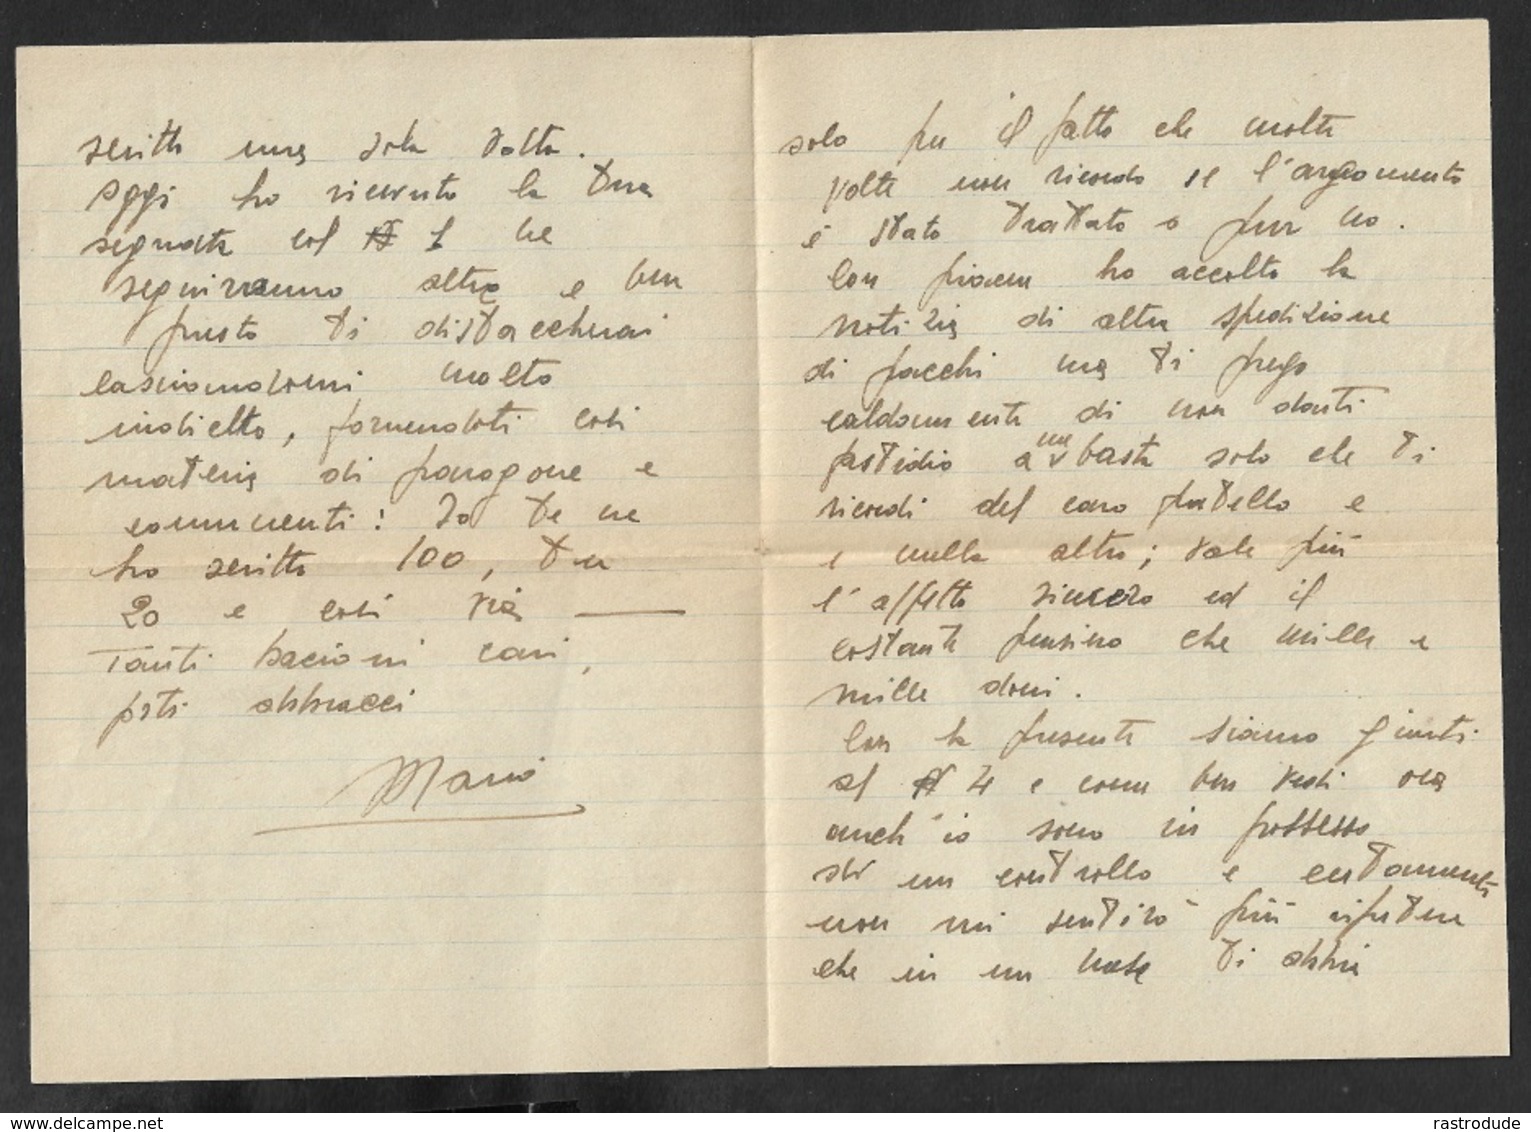 solo per il fatto che molte
volte non ricordo se l'argomento
è stato trattato o pur no.
Con piacere ho accolto la
notizia di altra spedizione
di pacchi ma ti prego
caldamente di non darti
fastidio a me basta solo che ti
ricordi del caro fratello e
e nulla altro; vale più
l'affetto sincero ed il
costante pensiero che mille e
mille doni.
Con la presente siamo giunti
al N 4 e come ben vedi ora
anch'io sono in possesso
di un controllo e certamente
non mi sentirò più ripetere
che in un mese ti abbia
scritto una sola volta.
Oggi ho ricevuto la tua
segnata col N 1 ne
seguiranno altre e ben
presto ti distaccherai
lasciandomi molto
indietro, fornendoti così
materia di paragone e
commenti! Io te ne
ho scritte 100, tu
20 e così via —
Tanti bacioni cari,
forti abbracci
Mario
www.delcampe.net
rastrodude